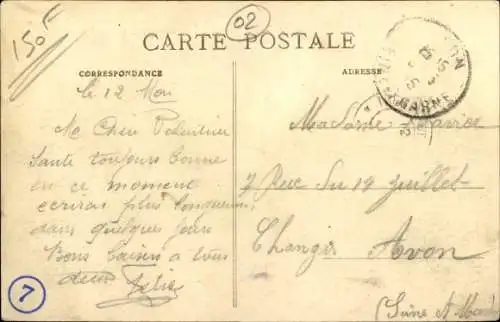 150F
02
CARTE POSTALE
CORRESPONDANCE
ADRESSE
MARNE
le 12 Mou
Me Chère
Santé toujours bonne
en ce moment
ecrirai plus longuement
dans quelques jours
Bons baisers a tous
deux
Madame
7 Rue du 14 juillet
Changis Avon
(Seine et Marne
7